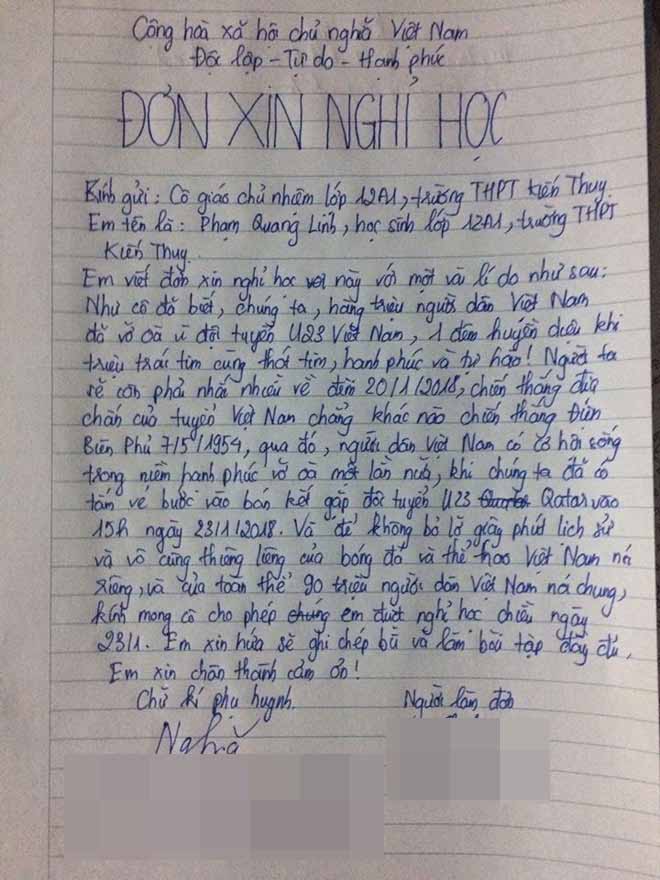 Cộng hoà xã hội chủ nghĩa Việt Nam
Độc lập - Tự do - Hạnh phúc
ĐƠN XIN NGHỈ HỌC
Kính gửi: Cô giáo chủ nhiệm lớp 12A1, trường THPT Kiến Thụy.
Em tên là: Phạm Quang Linh, học sinh lớp 12A1, trường THPT
Kiến Thụy.
Em viết đơn xin nghỉ học này với một vài lí do như sau:
Như cô đã biết, chúng ta, hàng triệu người dân Việt Nam
đã vỡ oà vì đội tuyển U23 Việt Nam, 1 đêm huyền diệu khi
triệu trái tim cùng thót tim, hạnh phúc và tự hào! Người ta
sẽ còn phải nhắc nhiều về đêm 20/1/2018, chiến thắng địa
chấn của tuyển Việt Nam chẳng khác nào chiến thắng Điện
Biên Phủ 7/5/1954, qua đó, người dân Việt Nam có cơ hội sống
trong niềm hạnh phúc vỡ oà một lần nữa, khi chúng ta đã có
tấm vé bước vào bán kết gặp đội tuyển U23 Qatar vào
15h ngày 23/1/2018. Và để không bỏ lỡ giây phút lịch sử
và vô cùng thiêng liêng của bóng đá và thể thao Việt Nam nói
riêng, và của toàn thể 90 triệu người dân Việt Nam nói chung,
kính mong cô cho phép em được nghỉ học chiều ngày
23/1. Em xin hứa sẽ ghi chép bù và làm bài tập đầy đủ.
Em xin chân thành cảm ơn!
Chữ kí phụ huynh. Người làm đơn
Nghĩa